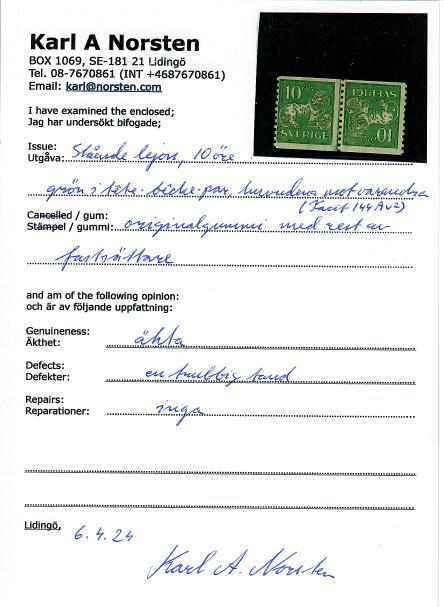 Karl A Norsten
BOX 1069, SE-181 21 Lidingö
Tel. 08-7670861 (INT +4687670861)
Email: karl@norsten.com
10 ÖRE 10 ÖRE
SVERIGE SVERIGE
I have examined the enclosed;
Jag har undersökt bifogade;
Issue:
Utgåva: Stående lejon, 10 öre
grön i tête-bêche-par, huvudena mot varandra
(Facit 144Av2)
Cancelled / gum:
Stämpel / gummi: originalgummi med rest av
fastsättare
and am of the following opinion:
och är av följande uppfattning:
Genuineness:
Äkthet: äkta
Defects:
Defekter: en trubbig tand
Repairs:
Reparationer: inga
Lidingö, 6.4.24
Karl A. Norsten